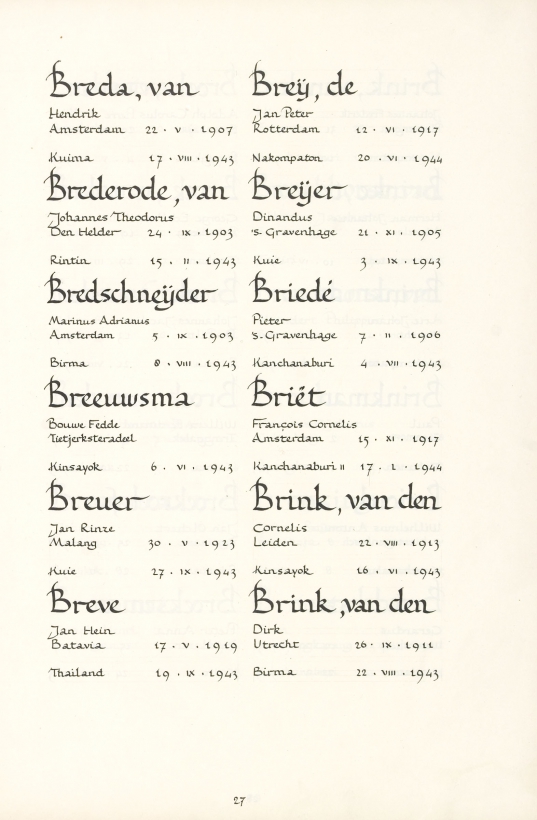 Breda, van
Hendrik
Amsterdam 22 · V · 1907
Kuima 17 · VIII · 1943
Brederode, van
Johannes Theodorus
Den Helder 24 · IX · 1903
Rintin 15 · II · 1943
Bredschneijder
Marinus Adrianus
Amsterdam 5 · IX · 1903
Birma 8 · VIII · 1943
Breeuwsma
Bouwe Fedde
Tietjerksteradeel
Kinsayok 6 · VI · 1943
Breuer
Jan Rinze
Malang 30 · V · 1923
Kuie 27 · IX · 1943
Breve
Jan Hein
Batavia 17 · V · 1919
Thailand 19 · IX · 1943
Breÿ, de
Jan Peter
Rotterdam 12 · VI · 1917
Nakompaton 20 · VI · 1944
Breÿer
Dinandus
's-Gravenhage 21 · XI · 1905
Kuie 3 · IX · 1943
Briedé
Pieter
's-Gravenhage 7 · II · 1906
Kanchanaburi 4 · VII · 1943
Briët
François Cornelis
Amsterdam 15 · XI · 1917
Kanchanaburi II 17 · I · 1944
Brink, van den
Cornelis
Leiden 22 · VIII · 1913
Kinsayok 16 · VI · 1943
Brink, van den
Dirk
Utrecht 26 · IX · 1911
Birma 22 · VIII · 1943
27